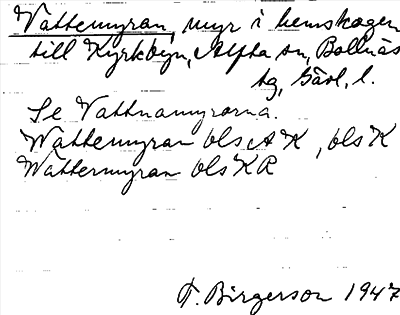 Vattemyran, myr i hemskogen
till Kyrkbyn, Alfta sn, Bollnäs
tg, Gävl. l.
Se Vattnamyrorna.
Wattemyran bls A K, bls K
Wattermyran bls K R
T. Birgerson 1947